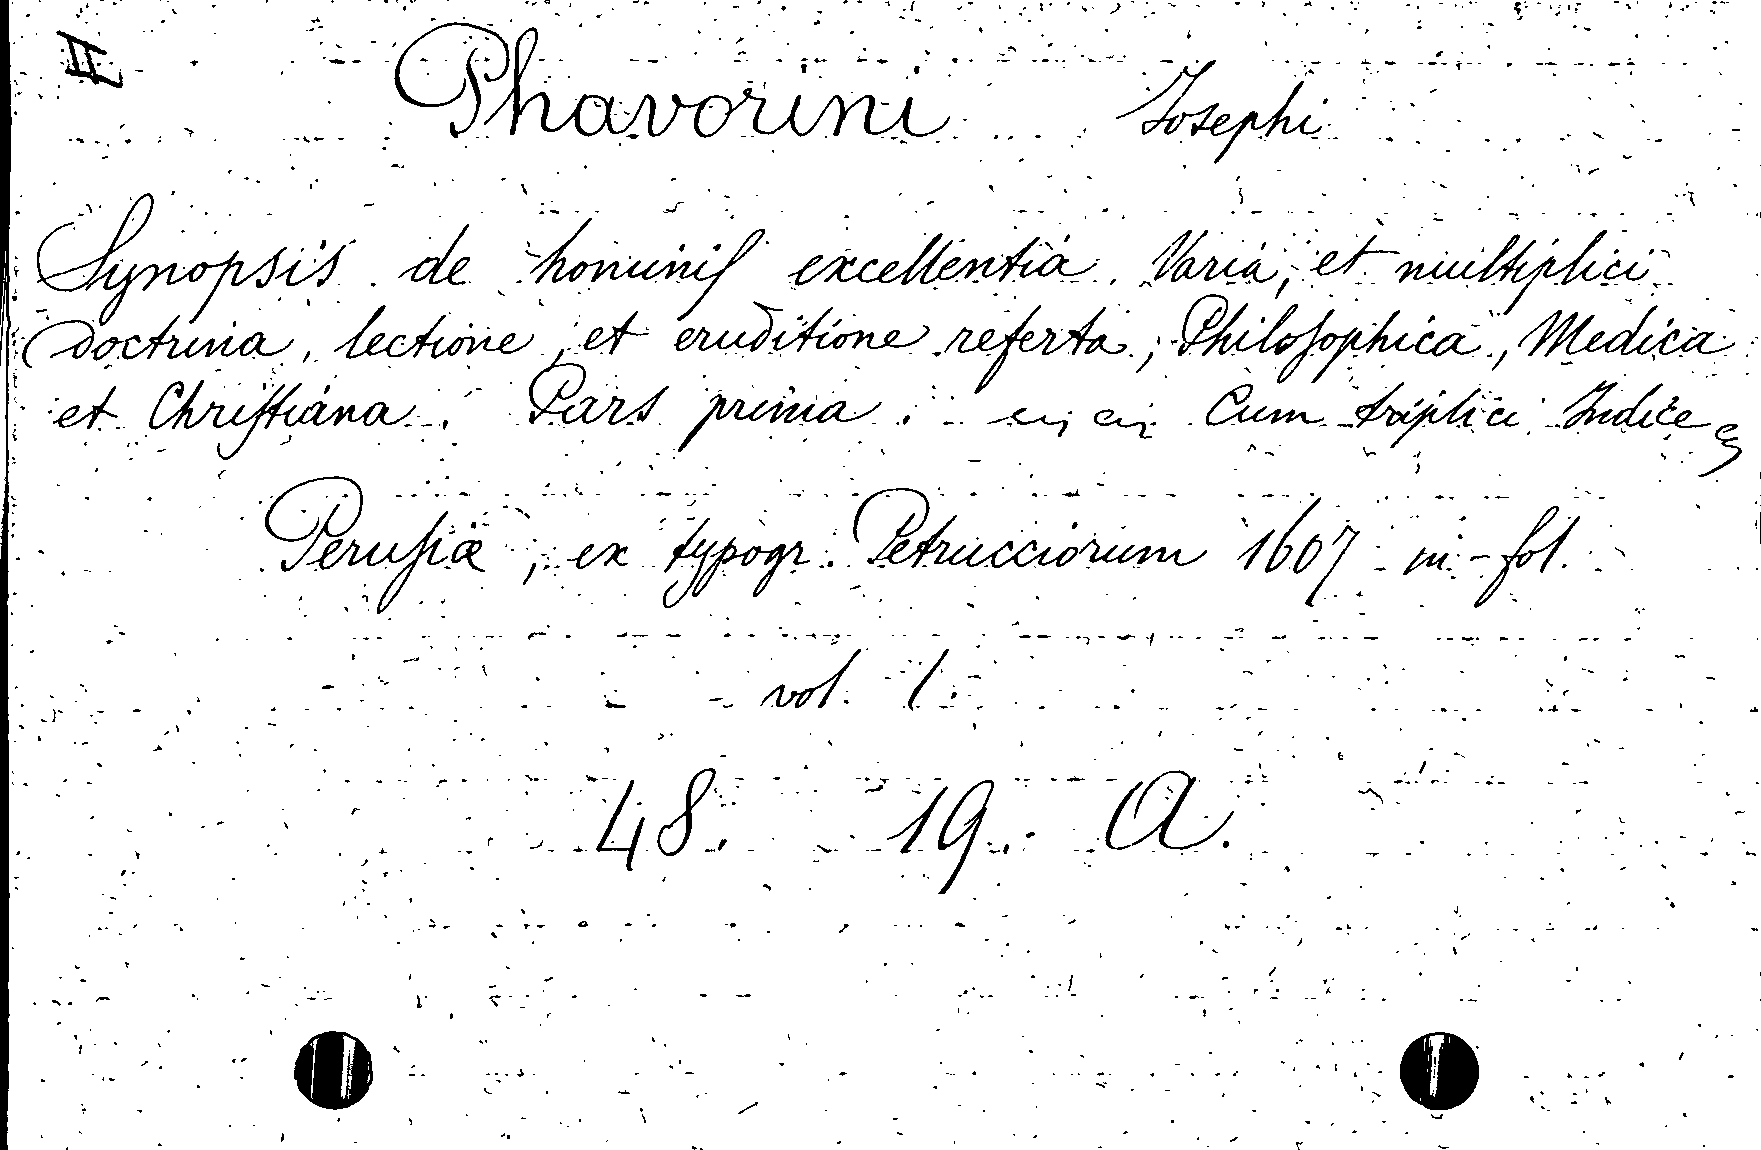 II
Phavorini Josephi
Synopsis de hominiſ excellentia. Varia, et multiplici
doctrina, lectione, et eruditione referta, Philoſophica, Medica
et Chriſtiana. Pars prima. Cum triplici Indice
Peruſiæ, ex typogr. Petrucciorum 1607 in-fol.
vol. 1.
48. 19. A.